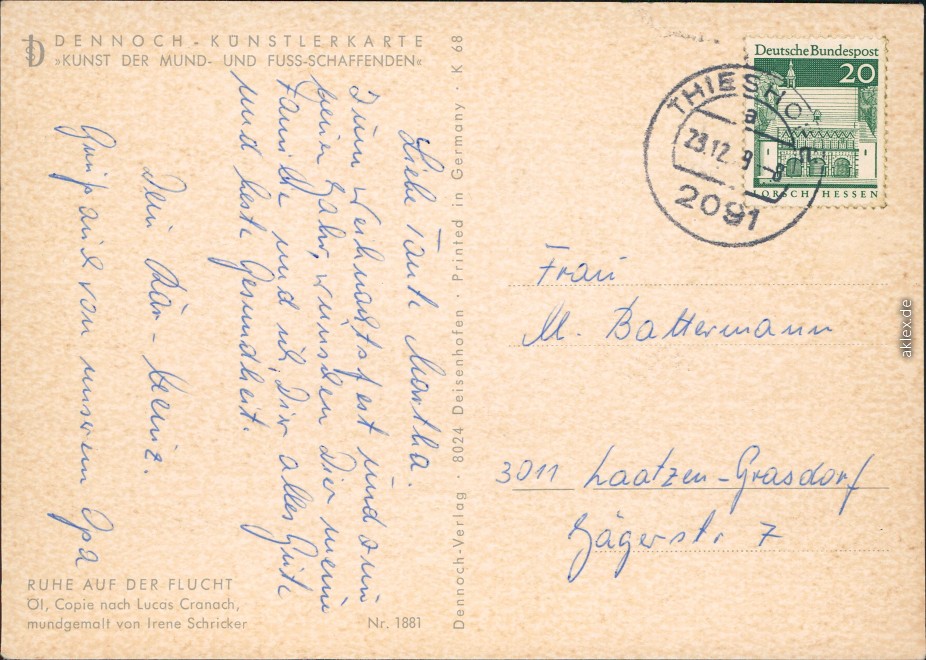 DENNOCH - KÜNSTLERKARTE
»KUNST DER MUND- UND FUSS-SCHAFFENDEN«
Liebe Tante Martha.
Zum Weihnachtsfest und zum
neuen Jahr, wünschen Dir meine
Familie und ich, Dir alles Gute
und beste Gesundheit.
Dein Karl-Heinz.
Gruß auch von unserem Opa
RUHE AUF DER FLUCHT
Öl, Copie nach Lucas Cranach,
mundgemalt von Irene Schricker
Nr. 1881
Dennoch-Verlag · 8024 Deisenhofen · Printed in Germany · K 68
Deutsche Bundespost
20
LORSCH/HESSEN
THIESHO
a
23.12. 9-8
2091
Frau
M. Battermann
3011 Laatzen-Grasdorf
Jägerstr. 7
aklex.de